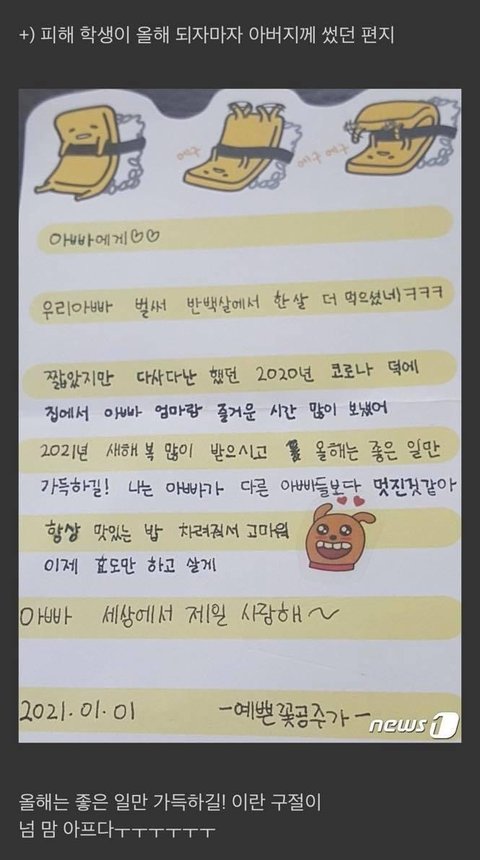 +) 피해 학생이 올해 되자마자 아버지께 썼던 편지
에구
에구 에구
아빠에게♡♡
우리아빠 벌써 반백살에서 한살 더 먹으셨네ㅋㅋㅋ
짧았지만 다사다난 했던 2020년 코로나 덕에
집에서 아빠 엄마랑 즐거운 시간 많이 보냈어
2021년 새해 복 많이 받으시고 올해는 좋은 일만
가득하길! 나는 아빠가 다른 아빠들보다 멋진것같아
항상 맛있는 밥 차려줘서 고마워
이제 효도만 하고 살게
아빠 세상에서 제일 사랑해~
2021.01.01 -예쁜 꽃공주가-
news1
올해는 좋은 일만 가득하길! 이란 구절이
넘 맘 아프다ㅜㅜㅜㅜㅜㅜ